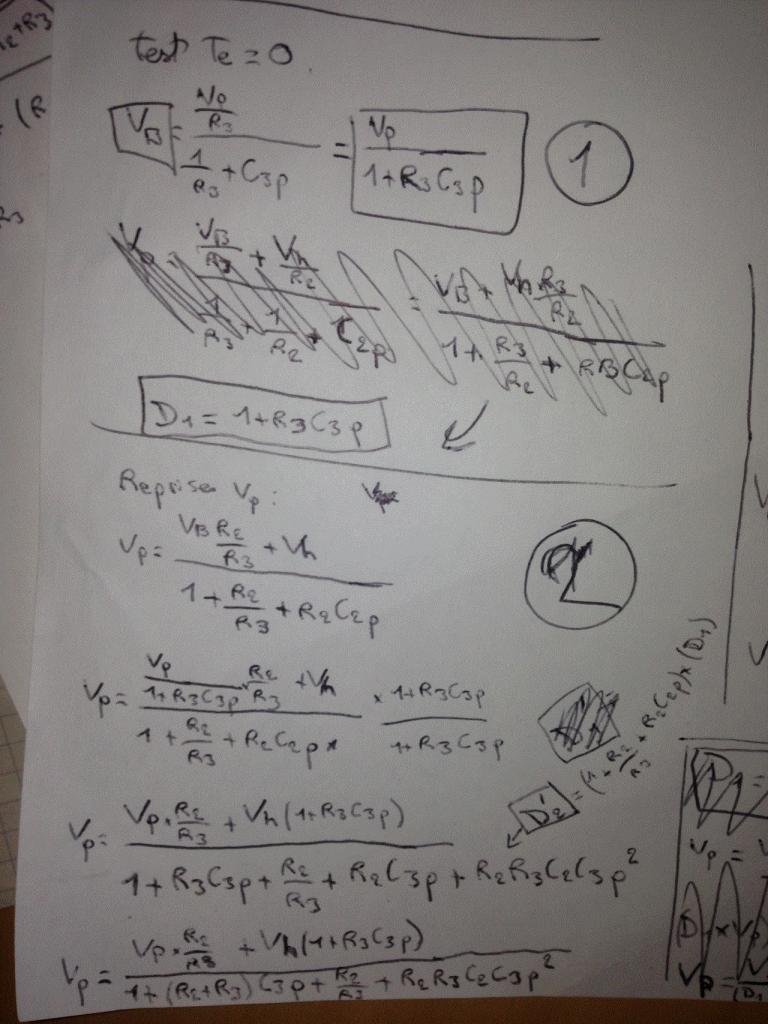 Test Te = 0.
V_B = (V_p/R3) / (1/R3 + C3p) = V_p / (1+R3C3p) 1
(V_B/R3 + Vh/R2) / (1/R3 + 1/R2 + C2p) = (V_B + Vh R3/R2) / (1 + R3/R2 + R3C2p)
D1 = 1+R3C3p
Reprise Vp :
Vp = (V_B R2/R3 + Vh) / (1 + R2/R3 + R2C2p) 2
Vp = (Vp/(1+R3C3p) · R2/R3 + Vh) / (1 + R2/R3 + R2C2p) × (1+R3C3p)/(1+R3C3p)
D'2 = (1 + R2/R3 + R2C2p) × (D1)
Vp = (Vp · R2/R3 + Vh(1+R3C3p)) / (1 + R3C3p + R2/R3 + R2C3p + R2R3C2C3p²)
Vp = (Vp · R2/R3 + Vh(1+R3C3p)) / (1 + (R2+R3)C3p + R2/R3 + R2R3C2C3p²)
R2+R3
(R
R3
D1 =
Vp = V
D × Vp
Vp = V
(D1